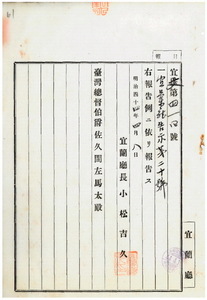 宜第四一〇號
右報告例ニ依リ報告ス
明治四十四年四月八日
宜蘭廳長 小松吉久
臺灣總督伯爵佐久間左馬太殿
宜蘭廳